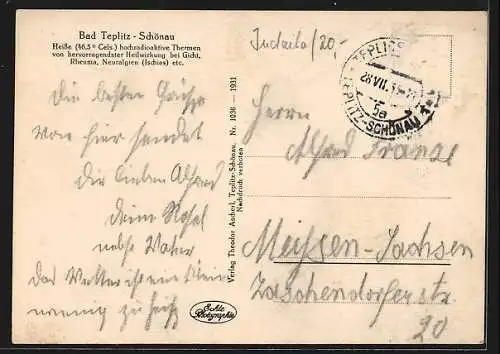 Bad Teplitz - Schönau
Heiße (46,5° Cels.) hochradioaktive Thermen
von hervorragendster Heilwirkung bei Gicht,
Rheuma, Neuralgien (Ischias) etc.
die besten Grüße
von hier sendet
dir lieber Alfred
deine Rosel
nebst Vater
das Wetter ist ein klein
wennig zu heiß
Verlag Theodor Ascherl, Teplitz-Schönau, Nr. 1036 - 1931
Nachdruck verboten
Echte
Photographie
/20,-
TEPLITZ-SCHÖNAU
28 VII
5a
Herrn
Alfred Franze
Meissen-Sachsen
Zaschendorferstr
20